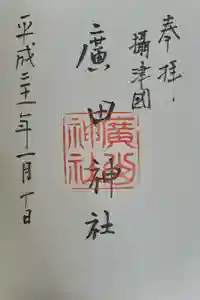 奉拝
攝津國
廣田神社
廣田神社
平成二十一年一月十日